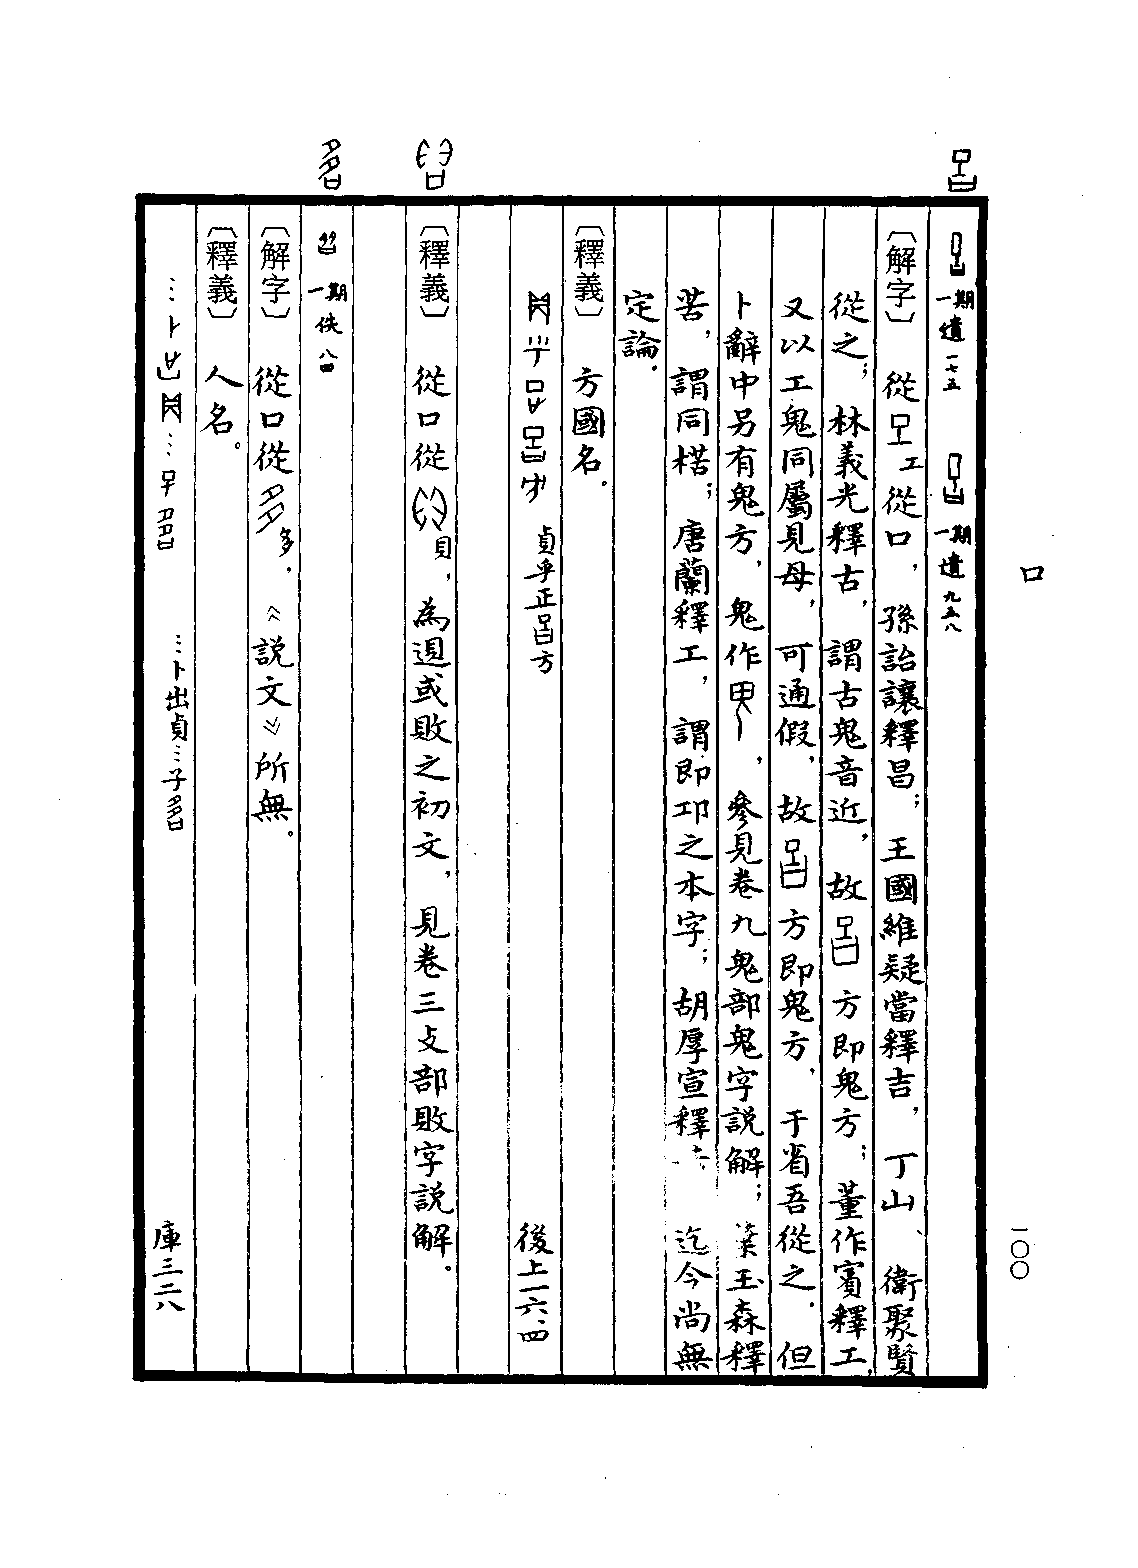 口
一〇〇
一期 遺一七五 一期 遺九五八
〔解字〕 從工從口，孫詒讓釋昌；王國維疑當釋吉，丁山、衛聚賢
從之；林義光釋古，謂古鬼音近，故方即鬼方；董作賓釋工，
又以工鬼同屬見母，可通假，故方即鬼方，于省吾從之．但
卜辭中另有鬼方，鬼作，參見卷九鬼部鬼字說解；葉玉森釋
苦，謂同楛；唐蘭釋工，謂即邛之本字；胡厚宣釋 迄今尚無
定論．
〔釋義〕 方國名．
貞乎正方 後上一六、四
〔釋義〕 從口從貝，為䢙或敗之初文，見卷三攴部敗字說解．
一期 佚八四
〔解字〕 從口從多，《說文》所無。
〔釋義〕 人名。
…卜出貞…子 庫三二八